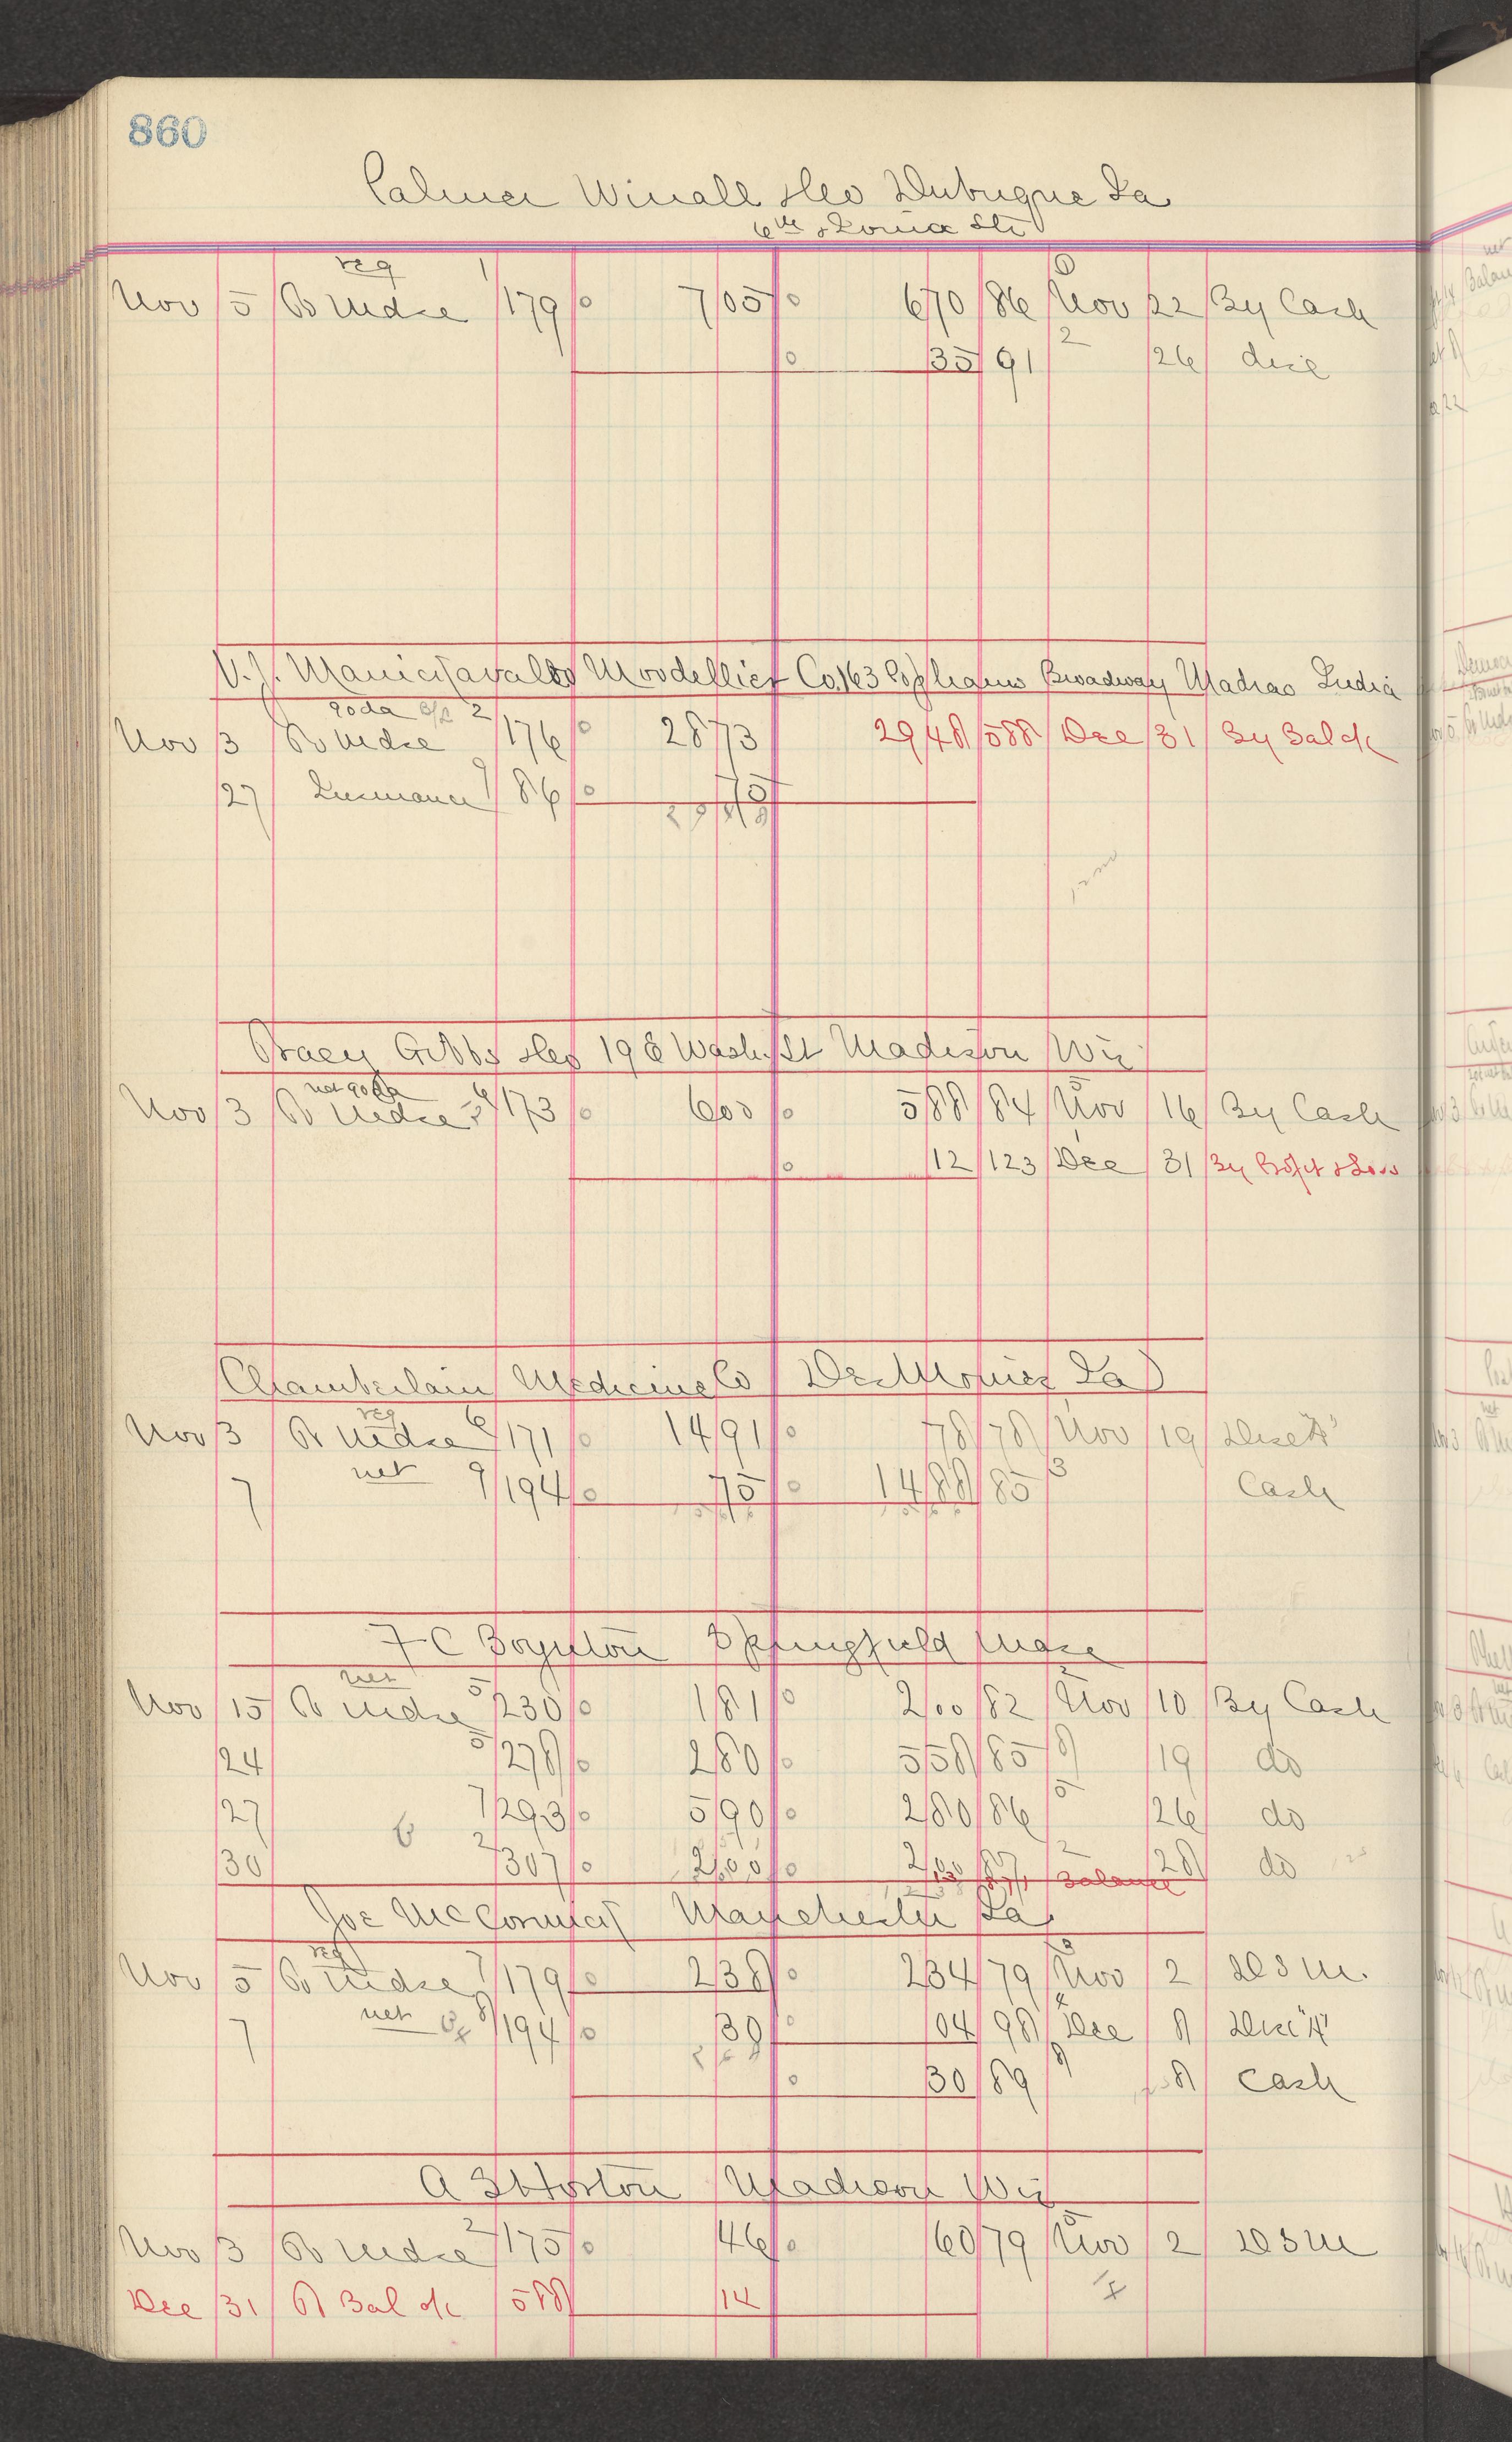 860
Palmer Winall & Co Dubuque Ia
6th & Sts
reg 1
Nov 5 To Mdse 179 0 7 05 0 6 70 86 Nov 22 By Cash
0 35 91 2 26 disc
V. J. Moodellier Co. 163 Broadway Madras India
goda 2
Nov 3 To Mdse 176 0 28 73 29 48 588 Dec 31 By Bal c/c
27 Insurance 9 86 0 75
29 48
Tracy Gibbs & Co 19 E Wash. St Madison Wis
net 90 da
Nov 3 To Mdse 173 0 6 00 0 5 88 84 Nov 16 By Cash
0 12 123 Dec 31 By Profit & Loss
Chamberlain Medicine Co Des Moines Ia
reg 6
Nov 3 To Mdse 171 0 14 91 0 78 78 Nov 19 Disct
7 net 9 194 0 75 0 14 88 85 3 Cash
F C Boynton Springfield Mass
net
Nov 15 To Mdse 5 230 0 1 81 0 2 00 82 2 Nov 10 By Cash
24 5 278 0 2 80 0 5 58 85 8 19 do
27 7 293 0 5 90 0 2 80 86 5 26 do
30 2 307 0 2 00 0 2 87 2 28 do
Balance
Joe McCormick Manchester Ia
reg
Nov 5 To Mdse 7 179 0 2 38 0 2 34 79 3 Nov 2
7 net 8 194 0 30 0 04 98 4 Dec 8 Disc
2 68
0 30 89 8 Cash
A Horton Madison Wis
Nov 3 To Mdse 2 175 0 46 0 60 79 5 Nov 2
Dec 31 To Bal c/c 588 14